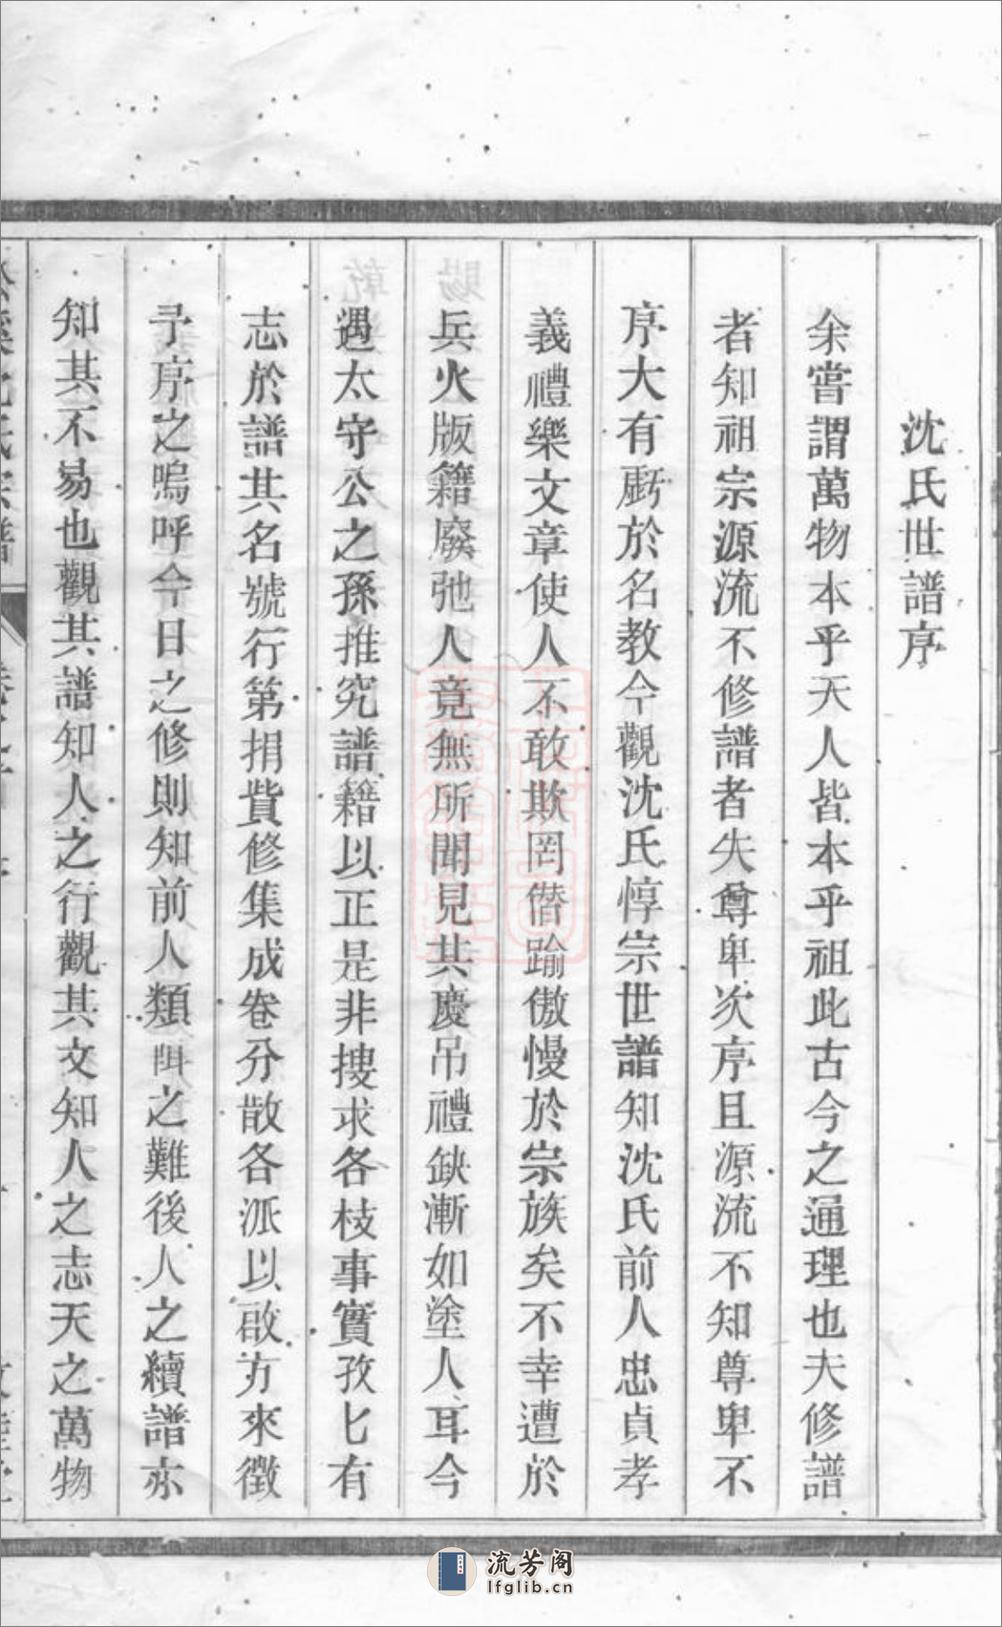 沈氏世譜序
余嘗謂萬物本乎天人皆本乎祖此古今之通理也夫修譜
者知祖宗源流不修譜者失尊卑次序且源流不知尊卑不
序大有虧於名教今觀沈氏惇宗世譜知沈氏前人忠貞孝
義禮樂文章使人不敢欺罔僭踰傲慢於宗族矣不幸遭於
兵火版籍廢弛人竟無所聞見其慶吊禮缺漸如塗人耳今
遇太守公之孫推究譜籍以正是非搜求各枝事實孜匕有
志於譜其名號行第捐貲修集成卷分散各派以啟方來徵
予序之嗚呼今日之修則知前人類之難後人之續譜亦
知其不易也觀其譜知人之行觀其文知人之志天之萬物
流芳阁
lfglib.cn